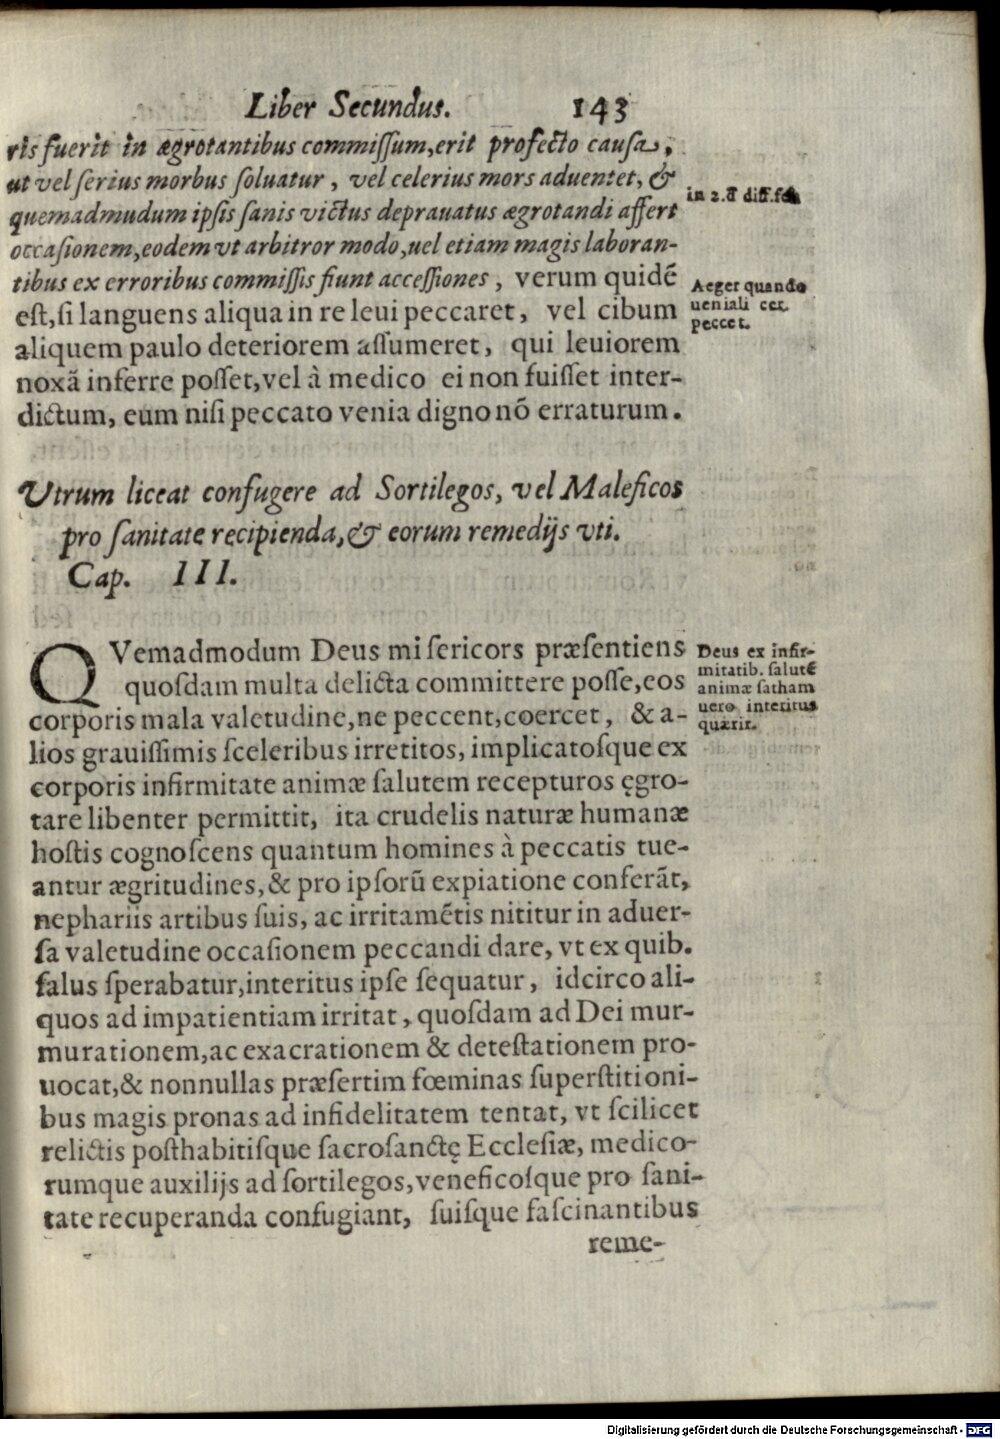 Liber Secundus. 143
ris fuerit in ægrotantibus commiſſum,erit profecto cauſa,
ut vel ſerius morbus ſoluatur, vel celerius mors aduentet, &
in 2. d̃ diff. feb.
quemadmudum ipſis ſanis victus deprauatus ægrotandi affert
occaſionem,eodem vt arbitror modo,uel etiam magis laboran-
tibus ex erroribus commiſſis fiunt acceſſiones, verum quidẽ
eſt,ſi languens aliqua in re leui peccaret, vel cibum
Aeger quando
ueniali ter
peccet.
aliquem paulo deteriorem aſſumeret, qui leuiorem
noxã inferre poſſet,vel à medico ei non fuiſſet inter-
dictum, eum niſi peccato venia digno nõ erraturum.
Utrum liceat confugere ad Sortilegos, vel Maleficos
pro ſanitate recipienda,& eorum remedijs vti.
Cap. III.
QVemadmodum Deus miſericors præſentiens
quoſdam multa delicta committere poſſe,eos
corporis mala valetudine,ne peccent,coercet, & a-
Deus ex infir-
mitatib. ſalutẽ
animæ ſatham
uero interitus
quærit.
lios grauiſſimis ſceleribus irretitos, implicatoſque ex
corporis infirmitate animæ ſalutem recepturos ęgro-
tare libenter permittit, ita crudelis naturæ humanæ
hoſtis cognoſcens quantum homines à peccatis tue-
antur ægritudines,& pro ipſorũ expiatione conferãt,
nephariis artibus ſuis, ac irritamẽtis nititur in aduer-
ſa valetudine occaſionem peccandi dare, vt ex quib.
ſalus ſperabatur,interitus ipſe ſequatur, idcirco ali-
quos ad impatientiam irritat, quoſdam ad Dei mur-
murationem,ac exacrationem & deteſtationem pro-
uocat,& nonnullas præſertim fœminas ſuperſtitioni-
bus magis pronas ad infidelitatem tentat, vt ſcilicet
relictis poſthabitiſque ſacroſanctę Eccleſiæ, medico-
rumque auxilijs ad ſortilegos,veneficoſque pro ſani-
tate recuperanda confugiant, ſuiſque faſcinantibus
reme-
Digitalisierung gefördert durch die Deutsche Forschungsgemeinschaft - DFG